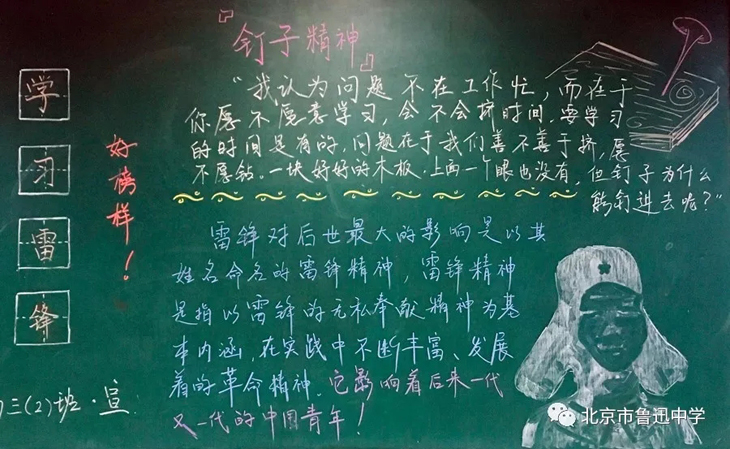 『钉子精神』
"我认为问题不在工作忙，而在于
你愿不愿意学习，会不会挤时间.要学习
的时间是有的.问题在于我们善不善于挤，愿
不愿钻.一块好好的木板.上面一个眼也没有，但钉子为什么
能钉进去呢？"
学
习
雷
锋
好榜样！
雷锋对后世最大的影响是以其
姓名命名的雷锋精神，雷锋精神
是指以雷锋的无私奉献精神为基
本内涵，在实践中不断丰富、发展
着的革命精神.它影响着后来一代
又一代的中国青年！
三(2)班·宣
北京市鲁迅中学